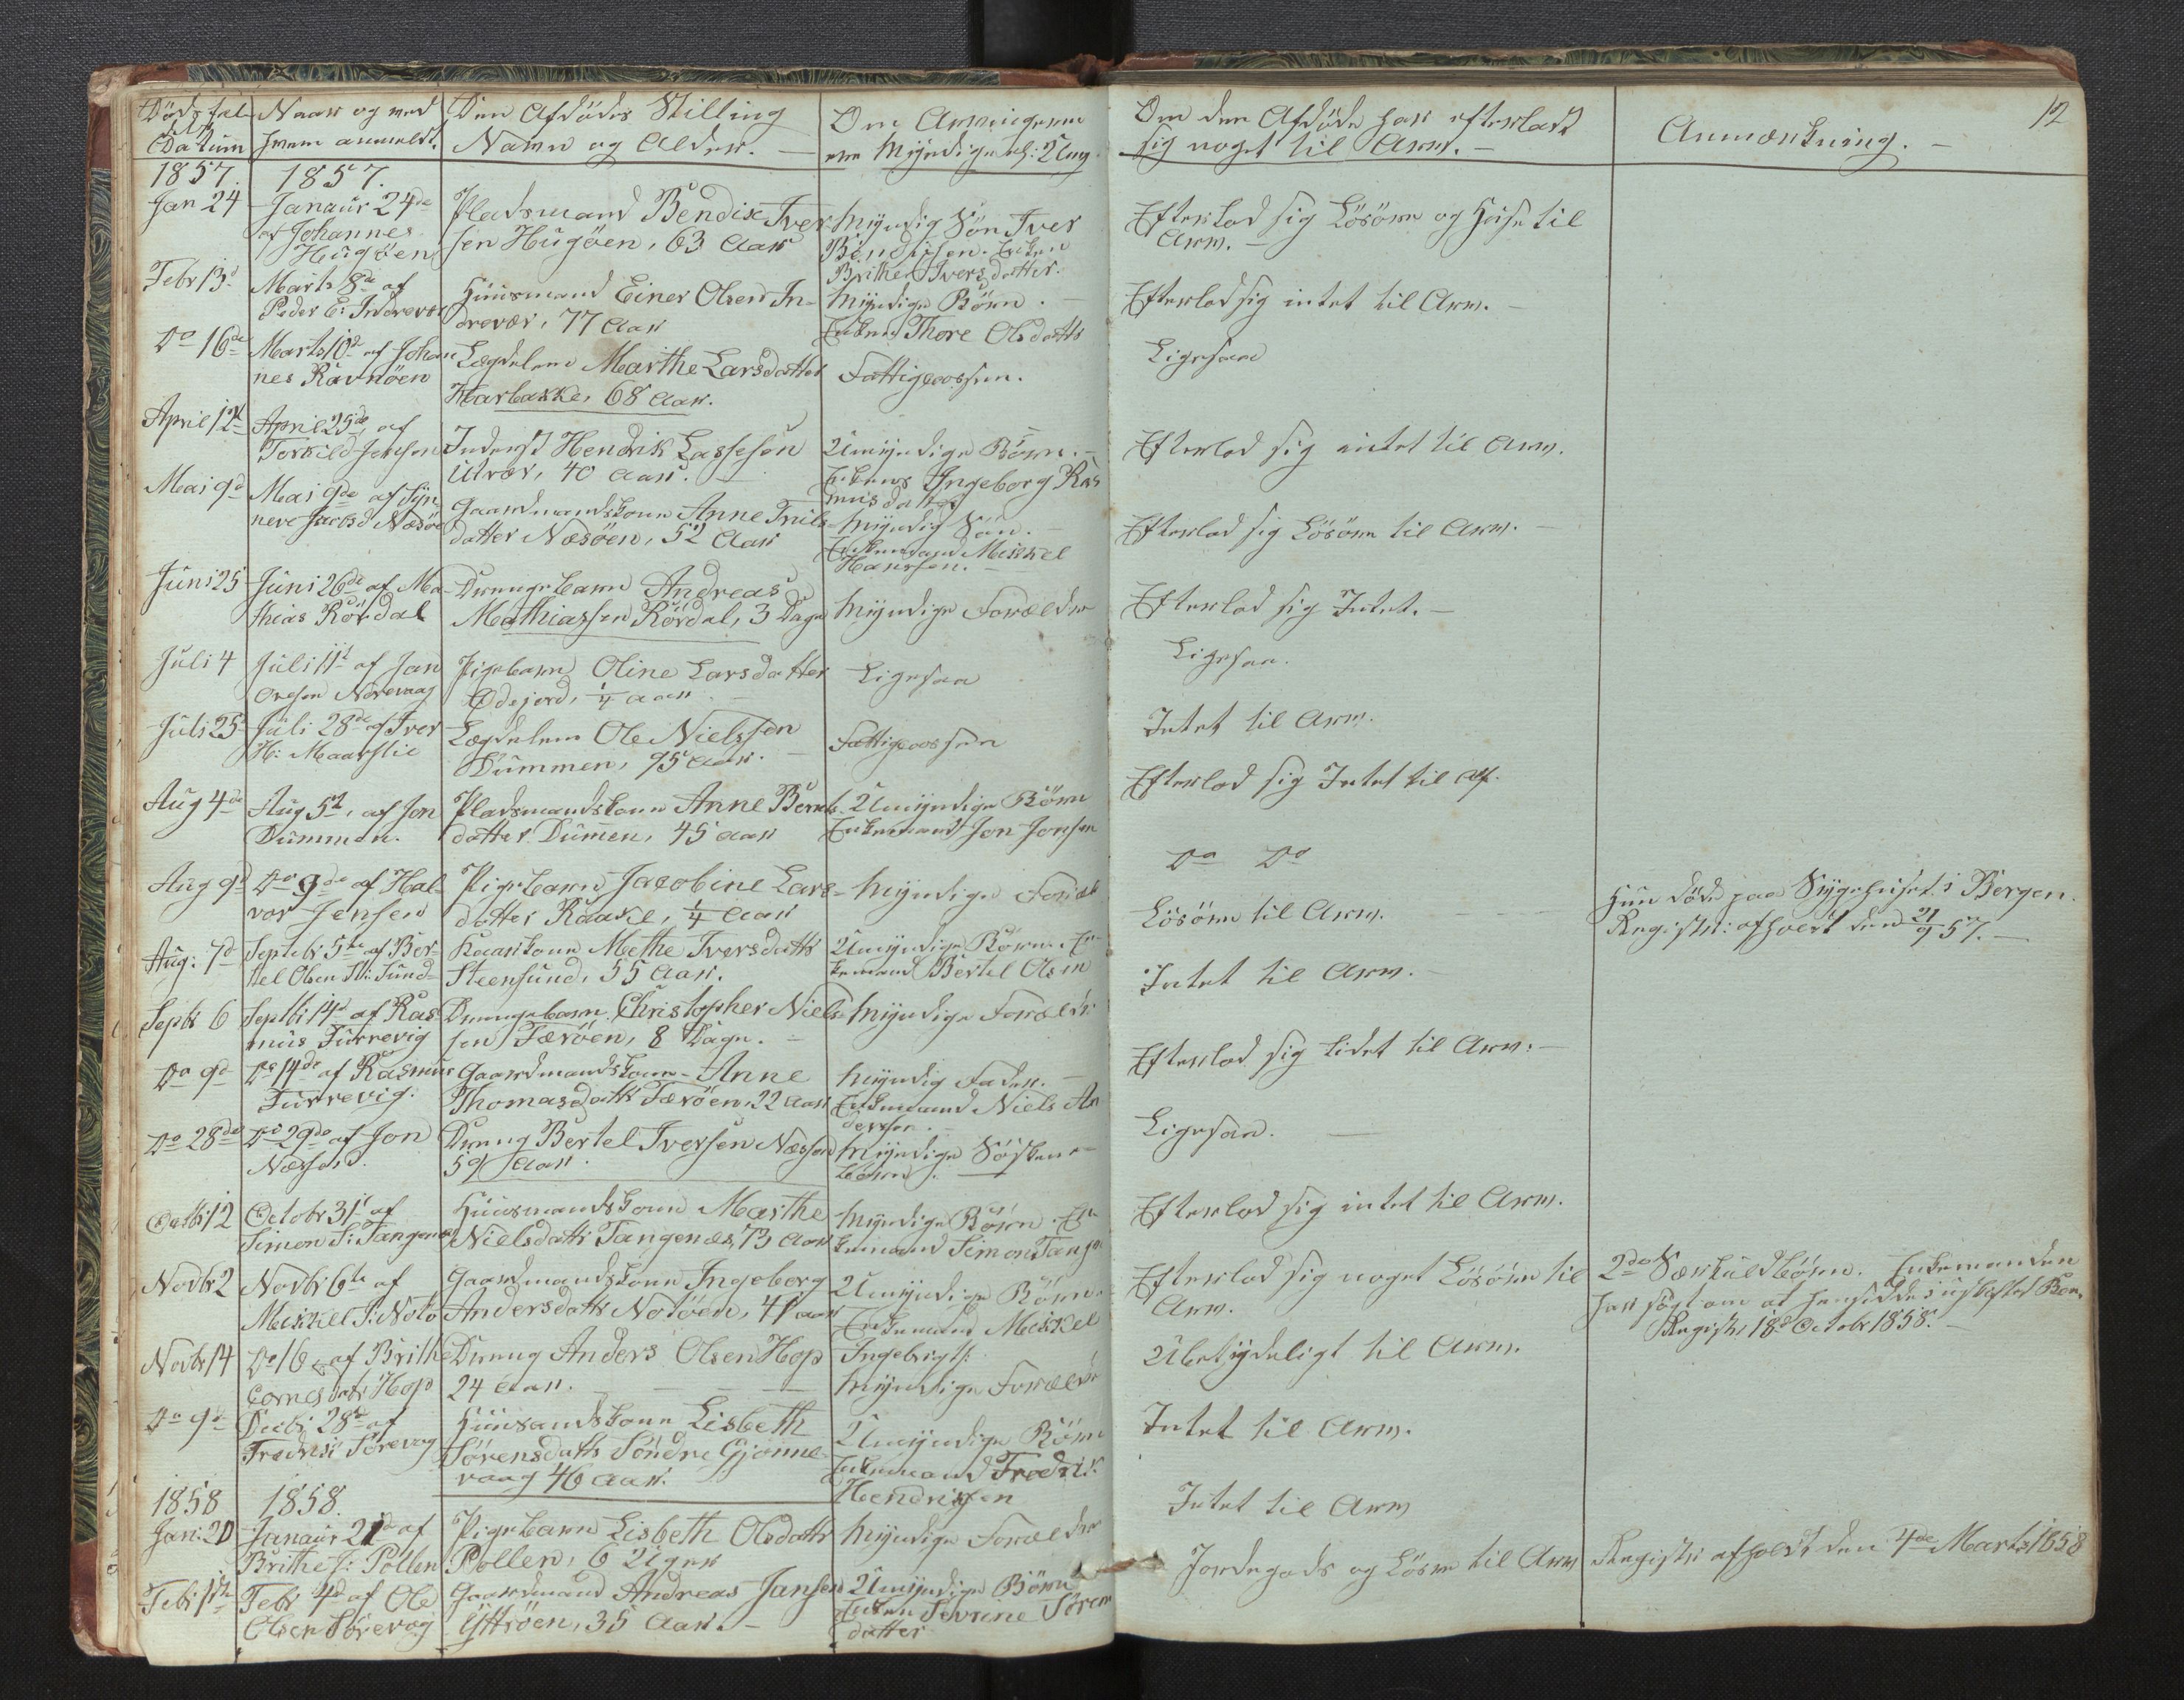 Dödsfal
Datum
Naar og ved
hvem anmeldt.
Den Afdödes Stilling
Navn og Alder. —
Om Arvingerne
ere Myndige el: Umy
Om den Afdöde har efterladt
sig noget til Arv. —
Anmærkning. —
12
1857.
1857.
Jan 24
Januar 24de
af Johannes
Hugöen
Pladsmand Bendix Iver
sen Hugöen, 63 Aar
Myndig Sön Iver
Bendixsen. Enken
Brithe Iversdatter.
Efterlod sig Lösöre og Huse til
Arv. —
Febr 13d
Marts 8de af
Peder E: Indrevær
Huusmand Einer Olsen In-
drevær, 77 Aar
Myndige Börn. —
Enken Thore Olsdattr
Efterlod sig intet til Arv. —
Do 16de
Marts 10de af Johan
nes Ravnöen
Lægdslem Marthe Larsdatter
Harbakke, 68 Aar.
Fattigvæsen.
Ligesaa
April 12t
April 25de af
Torkild Jensen
Inderst Hendrik Lassesön
Utvær, 40 Aar. —
Umyndige Börn. —
Enken Ingeborg Ras
musdatter
Efterlod sig intet til Arv.
Mai 9d
Mai 9de af Syn
neve Jacobsd Næsöe
Gaardmandskone Anne Truls
datter Næsöen, 52 Aar
Myndig Sön. —
Enkemand Mikkel
Hanssen. —
Efterlod sig Lösöre til Arv. —
Juni 25
Juni 26de af Ma-
thias Rördal
Drengebarn Andreas
Mathiassen Rördal, 3 Dage
Myndige Forældre
Efterlod sig Intet. —
Juli 4
Juli 11t af Jan
Olesen Norevaag
Pigebarn Oline Larsdatter
Ödejord, 1/4 Aar. —
Ligesaa
Ligesaa.
Juli 25
Juli 28de af Iver
H: Maarslie
Lægdslem Ole Nielssen
Dummen, 75 Aar. —
Fattigvæsen
Intet til Arv.
Aug 4de
Aug 5t, af Jon
Dummen.
Pladsmandskone Anne Berents
datter Dumen, 45 Aar
Umyndige Börn
Enkemand Jon Jonsen
Efterlod sig Intet til Af.
Aug 9d
Do 9de af Hal-
vor Jensen
Pigebarn Jacobine Lars-
datter Raake, 1/4 Aar
Myndige Foræl
Do Do
Aug: 7d
Septebr 5te af Ber-
tel Olsen St: Sund
Kaarkone Methe Iversdattr
Steensund, 55 Aar.
Umyndige Börn. En
kemand Bertel Olsen
Lösöre til Arv. — — —
Hun döde paa Sygehuset i Bergen.
Registr: afholdt den 21/9 57. —
Septr 6
Septbr 14d af Ras
mus Turrevig
Drengebarn Christopher Niels
sen Færöen, 8 Dage. —
Myndige Forældr
Intet til Arv. —
Do 9d
Do 14de af Rasmus
Turrevig.
Gaardmandskone Anne
Thomasdattr Færöen, 22 Aar
Myndig Fader. —
Enkemand Niels An
dersen. —
Efterlod sig lidet til Arv. —
Do 28de
Do 29de af Jon
Næsse
Dreng Bertel Iversen Næsse
59 Aar.
Myndige Söskende
börn. —
Ligesaa. —
Octbr 12
Octobr 31t af
Simon S: Tangenæs
Huusmandskone Marthe
Nielsdattr Tangenæs, 73 Aar
Myndige Börn. En
kemand Simon Tange
Efterlod sig intet til Arv.
Novbr 2
Novbr 6te af
Mikkel I: Notö
Gaardmandskone Ingeborg
Andersdattr Notöen, 41 Aar
Umyndige Börn.
Enkemand Mikkel
Ingebrigts:
Efterlod sig noget Lösöre til
Arv.
2de Særkuldbörn. Enkemanden
har sögt om at hensidde i uskiftet Boe.
Registr: 18d Octobr 1858. —
Novbr 14
Do 16 af Brithe
Cornelsdatr Hop
Dreng Anders Olsen Hop
24 Aar. — — —
Myndige Forældre
Ubetydeligt til Arv.
Do 9d
Decbr 28d af
Fredrik Sörevog
Huusandskone Lisbeth
Sörensdattr Söndre Gjönne-
vaag 46 Aar.
Umyndige Börn
Enkemand Fredrik
Hendriksen
Intet til Arv.
1858
1858.
Jan: 20
Januar 21de af
Brithe J: Pollen
Pigebarn Lisbeth Olsdattr
Pollen, 6 Uger
Myndige Forældre
Intet til Arv
Febr 1ste
Febr 4d af Ole
Olsen Sörevog
Gaardmand Andreas Jansen
Yttröen, 35 Aar. —
Umyndige Börn
Enken Sevrine Sören
datter
Jordegods og Lösöre til Arv
Registr: afholdt den 4de Marts 1858